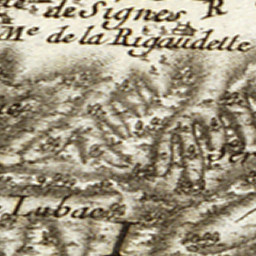 de Signes
R
Me de la Rigaudette
Lubac
I